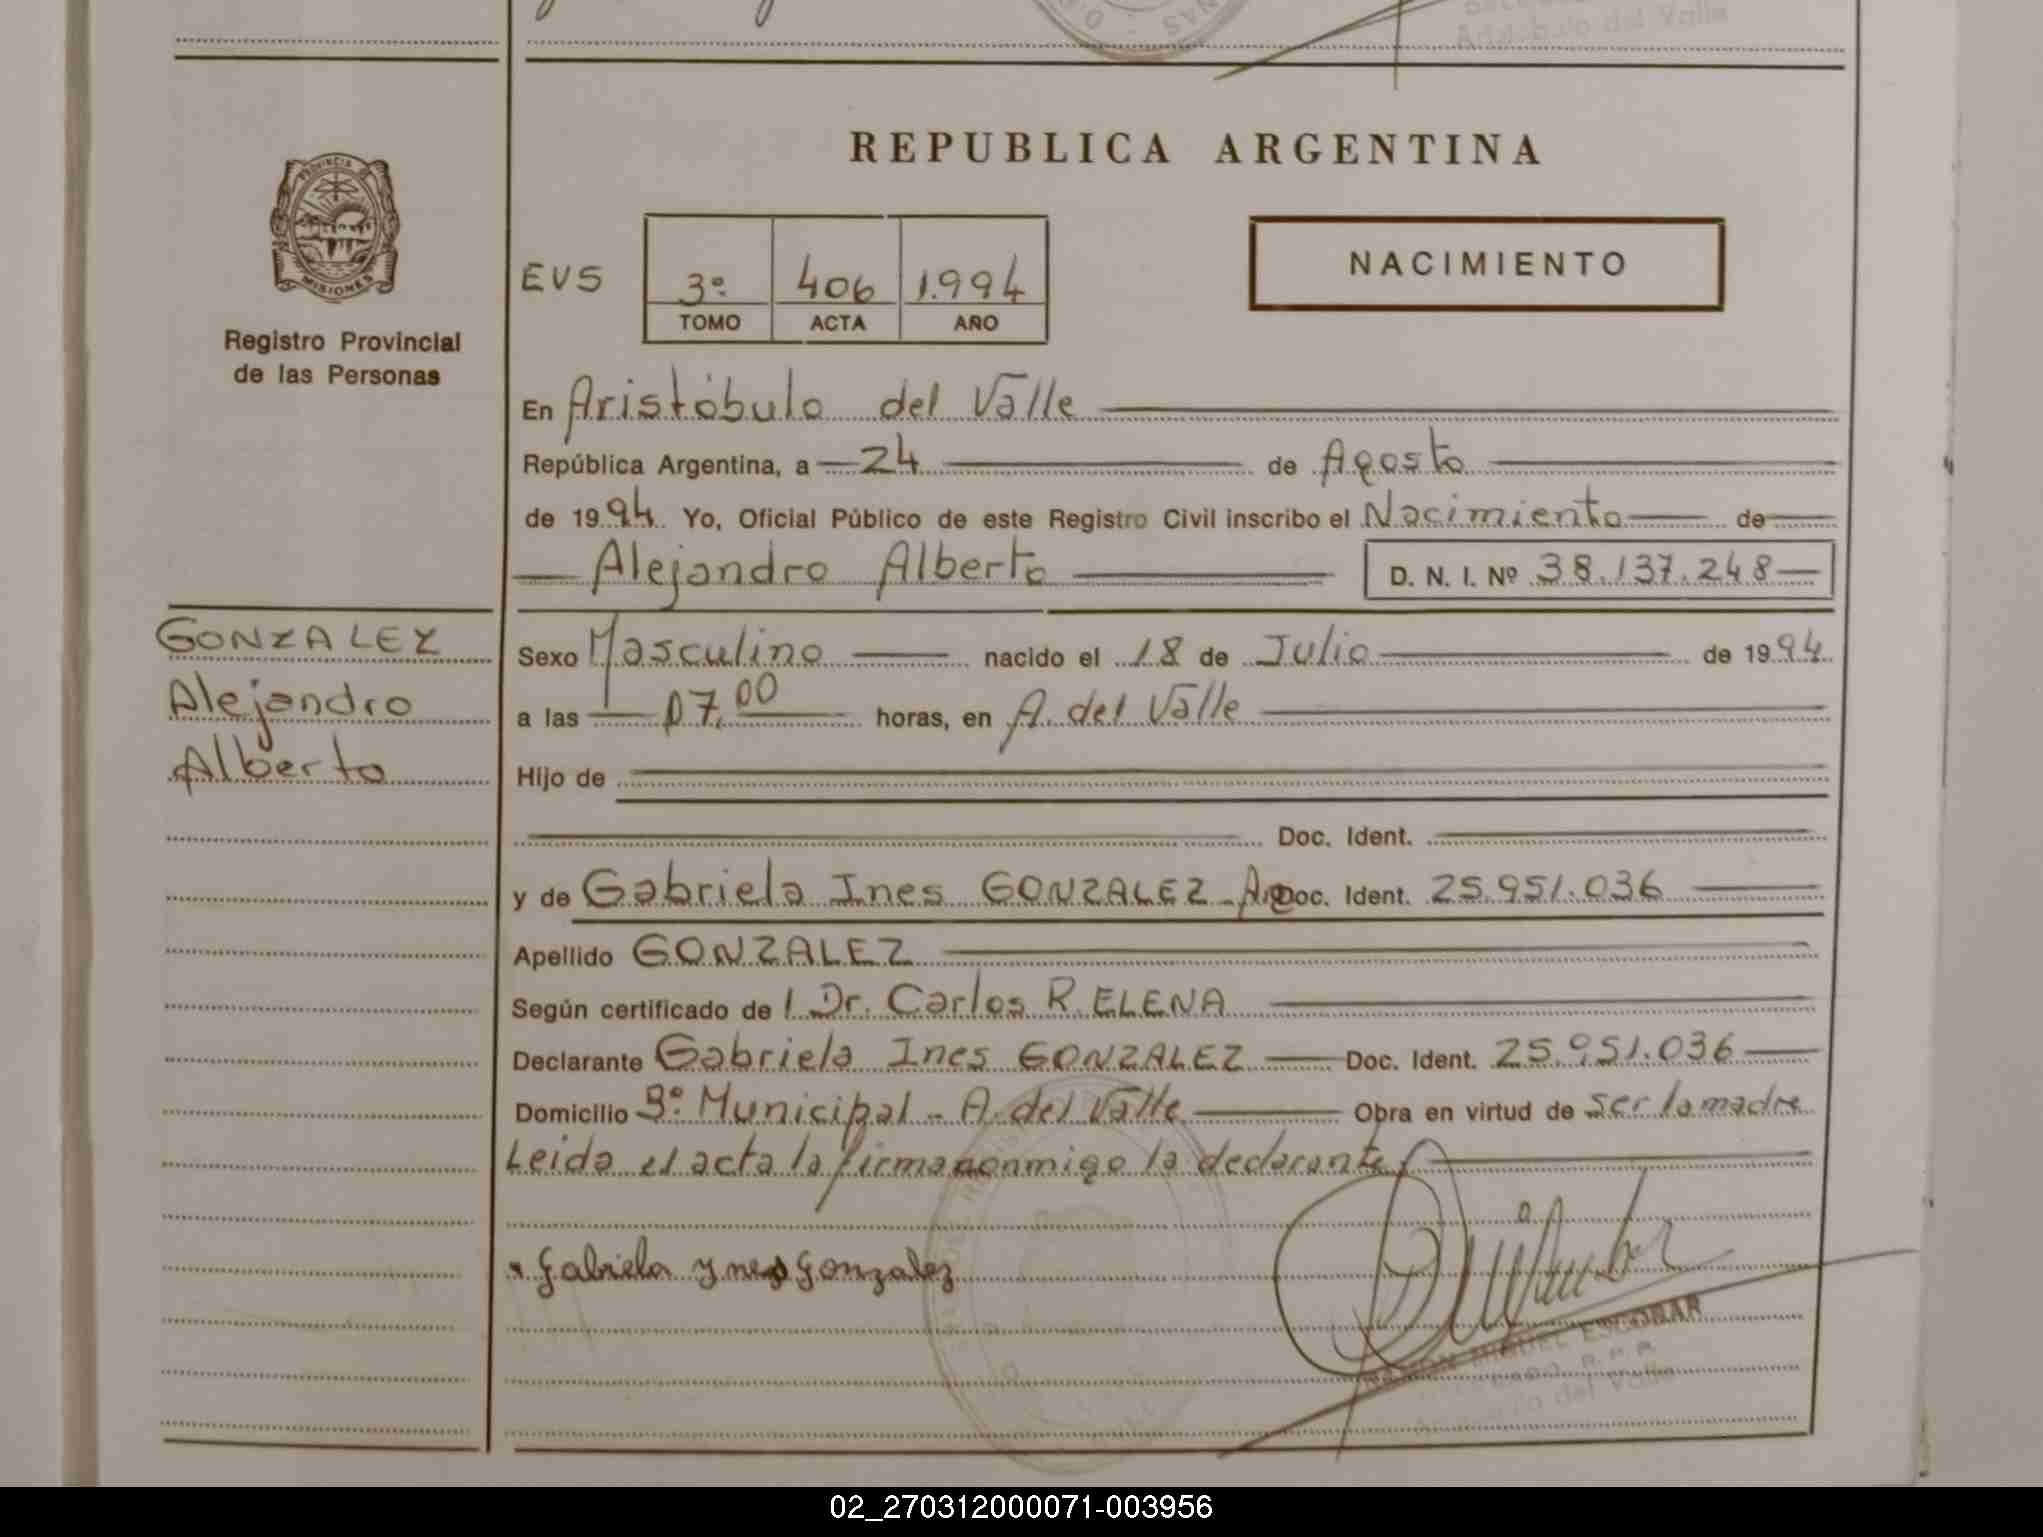 REPUBLICA ARGENTINA
PROVINCIA
MISIONES
Registro Provincial
de las Personas
EVS 3º 406 1.994
TOMO ACTA AÑO
NACIMIENTO
En Aristóbulo del Valle
República Argentina, a 24 de Agosto
de 1994. Yo, Oficial Público de este Registro Civil inscribo el Nacimiento de
Alejandro Alberto D. N. I. Nº 38.137.248
GONZALEZ
Alejandro
Alberto
Sexo Masculino nacido el 18 de Julio de 1994
a las 07,00 horas, en A. del Valle
Hijo de
Doc. Ident.
y de Gabriela Ines GONZALEZ - Arg Doc. Ident. 25.951.036
Apellido GONZALEZ
Según certificado de l Dr. Carlos R. ELENA
Declarante Gabriela Ines GONZALEZ Doc. Ident. 25.951.036
Domicilio Bº Municipal - A. del Valle Obra en virtud de ser la madre
Leida el acta la firma conmigo la declarante
Gabriela Ynes Gonzalez
MIGUEL ESCOBAR
del Valle
02_270312000071-003956